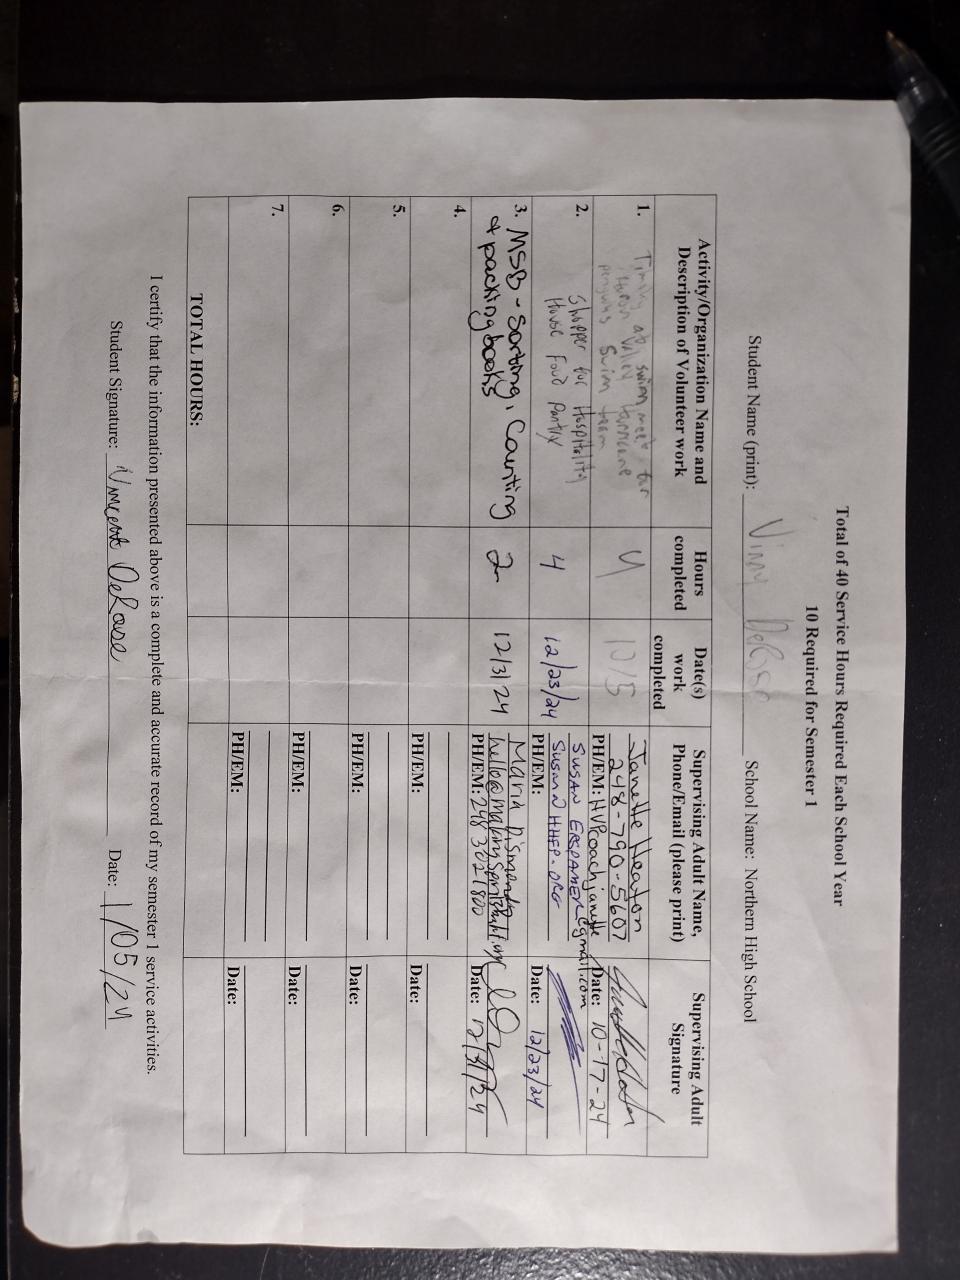 Total of 40 Service Hours Required Each School Year
10 Required for Semester 1
Student Name (print): Vinny DeRose School Name: Northern High School
Activity/Organization Name and
Description of Volunteer work
Hours
completed
Date(s)
work
completed
Supervising Adult Name,
Phone/Email (please print)
Supervising Adult
Signature
1. Timing at swim meet for
Huron Valley Hurricane
penguins swim team
4
10/5
Janette Heaton
248-790-5607
PH/EM: HVPcoachjanette
@gmail.com
Date: 10-17-24
2. Shopper for Hospitality
House Food Pantry
4
12/23/24
SUSAN ERSPAMER
SUSAN HHFP.ORG
PH/EM:
Date: 12/23/24
3. MSB - Sorting, Counting
& packing books
2
12/3/24
Maria Dismondy
PH/EM: 248 302 1800
Date: 12/3/24
4.
PH/EM:
Date:
5.
PH/EM:
Date:
6.
PH/EM:
Date:
7.
PH/EM:
Date:
TOTAL HOURS:
I certify that the information presented above is a complete and accurate record of my semester 1 service activities.
Student Signature: Vincent DeRose Date: 1/05/24